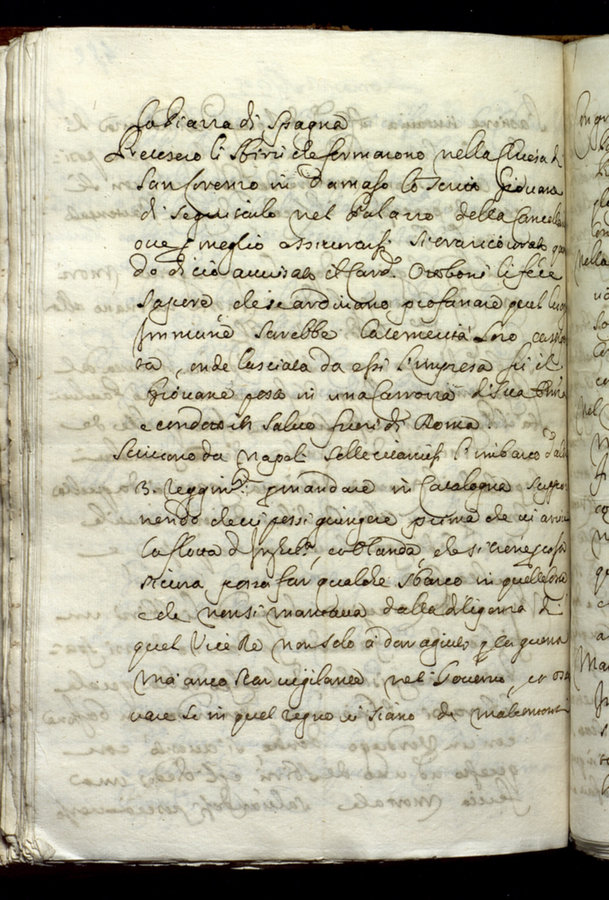 la Piazza di Spagna
Pretesero li Sbirri che fermarono nella Chiesa di
San Lorenzo in Damaso lo scritto Giovane
di seguirlo nel Palazzo della Cancell
ove p meglio assicurarsi si era ricovrato, quan
do di ciò avvisato il Card. Ottoboni li fece
sapere che se ardivano profanare quel luogo
Immune sarebbe la temerità loro casti
ta, onde lasciata da essi l'impresa fu il
Giovane posto in una Carrozza di Sua
e condotto in salvo fuori di Roma
Scrivono da Napoli sollecitarsi l'imbarco d
3. Reggim. p mandare in Catalogna suppo
nendo che vi possi giungere prima che vi arrivi
la flotta d' Inghil. e Olanda, che si tiene p cosa
sicura possa far qualche sbarco in quelle
e che non si mancava dalla diligenza di
quel Vice Re non solo p la guerra
ma anco star vigilante nel Governo, et osser
vare se in quel regno vi siano de malcontenti